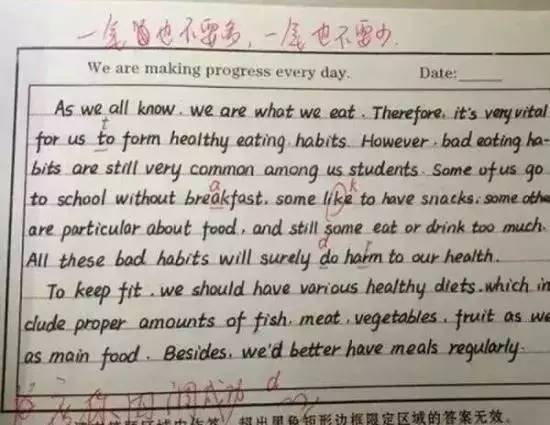 一笔也不要多，一笔也不要少.
We are making progress every day. Date:_____
As we all know, we are what we eat. Therefore, it's very vital
t
for us to form healthy eating habits. However, bad eating ha-
bits are still very common among us students. Some of us go
a k
to school without breakfast, some like to have snacks, some othe
are particular about food, and still some eat or drink too much.
d r
All these bad habits will surely do harm to our health.
To keep fit, we should have various healthy diets, which in
clude proper amounts of fish, meat, vegetables, fruit as we
as main food. Besides, we'd better have meals regularly.
成功 d
答题区域内作答，超出黑色矩形边框限定区域的答案无效。